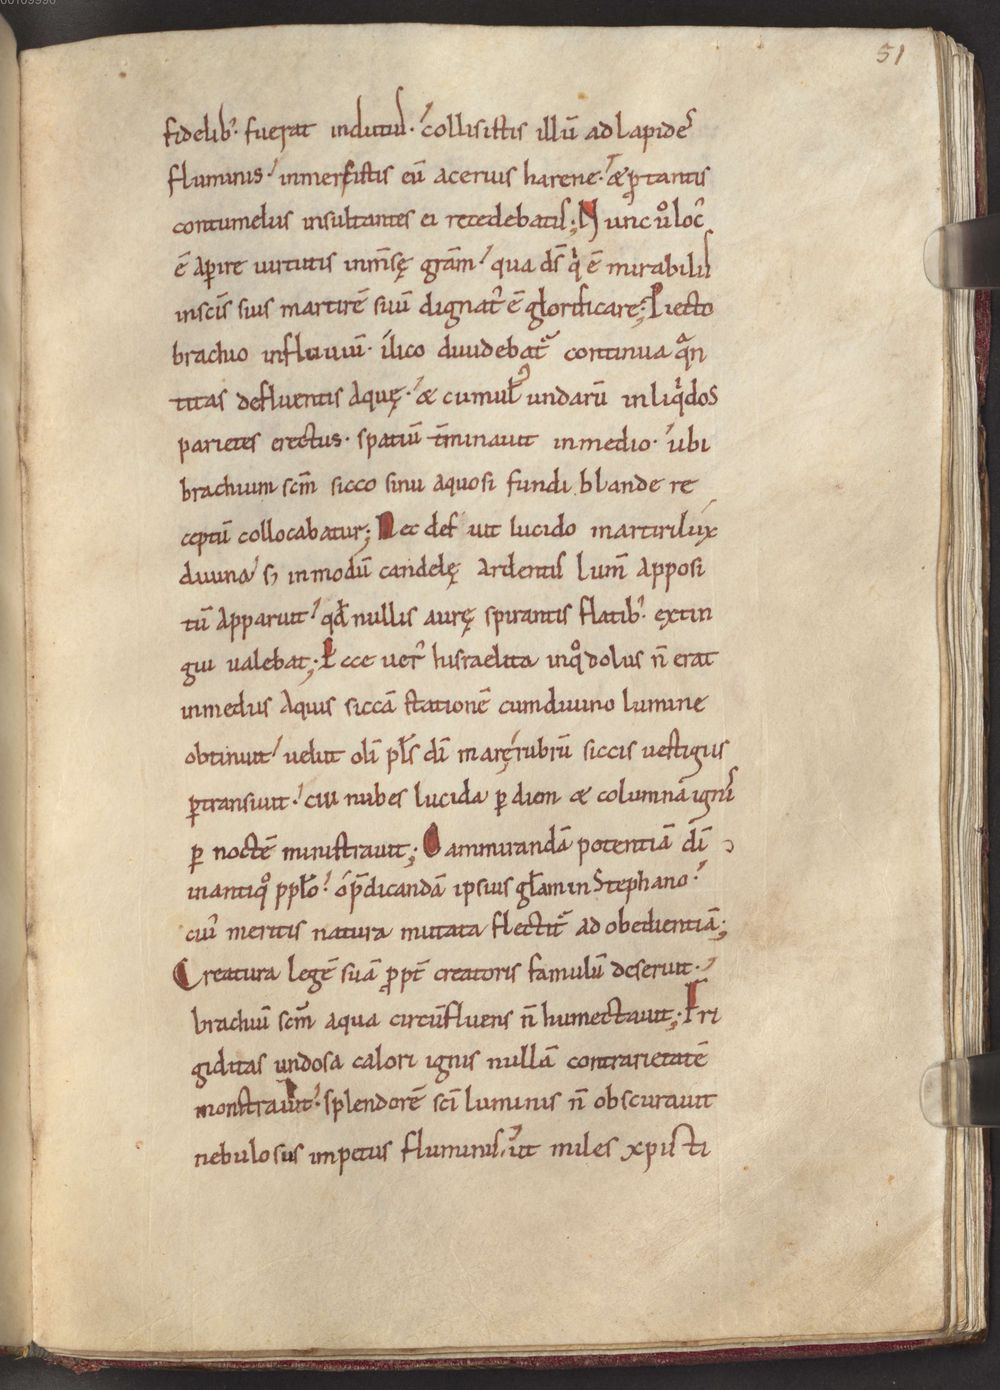 51
fidelib; fuerat indutus. collisistis illū ad lapidē
fluminis. inmersistis eū aceruis harene. & p̱tantis
contumeliis insultantes ei recedebatis; Nunc uͦ loc᷒
ē aꝑire uirtutis inm̄sę grām. qua d̄s qͥ ē mirabilis
in sc̄is suis martirē suū dignat᷒ ē glorificare; Piecto
brachio in fluuiū. ilico diuidebat᷒ continua qᷓn
titas defluentis aquę. & cumul᷒ undarū in liqͥdos
parietes erectus. spatiū t̄minauit in medio. ubi
brachium sc̄m sicco sinu aquosi fundi blande re
ceptū collocabatur; Nec defuit lucido martiri lux
diuina. s; in modū candelę ardentis lum̄ apposi
tū apparuit. qd̄ nullis aurę spirantis flatib; extin
gui ualebat; Ecce uer᷒ hisraelita in qͦ dolus n̄ erat
in mediis aquis siccā stationē cum diuino lumine
obtinuit. uelut oli pl̄s dī mare rubrū siccis uestigiis
ꝑtransiuit. cui nubes lucida ꝑ diem & columna ignis
ꝑ noctē ministrauit; O ammirandā potentiā dī
in antiqͦ pplo. o p̄dicandā ipsius glām in Stephano.
cui᷒ meritis natura mutata flectit᷒ ad obedientiā;
Creatura legē suā ꝓpt̄ creatoris famulū deseruit.
brachiū sc̄m aqua circūfluens n̄ humectauit; Fri
giditas undosa calori ignis nullā contrarietatē
monstrauit. splendorē sc̄i luminis n̄ obscurauit
nebulosus impetus fluminis. ut miles xpisti